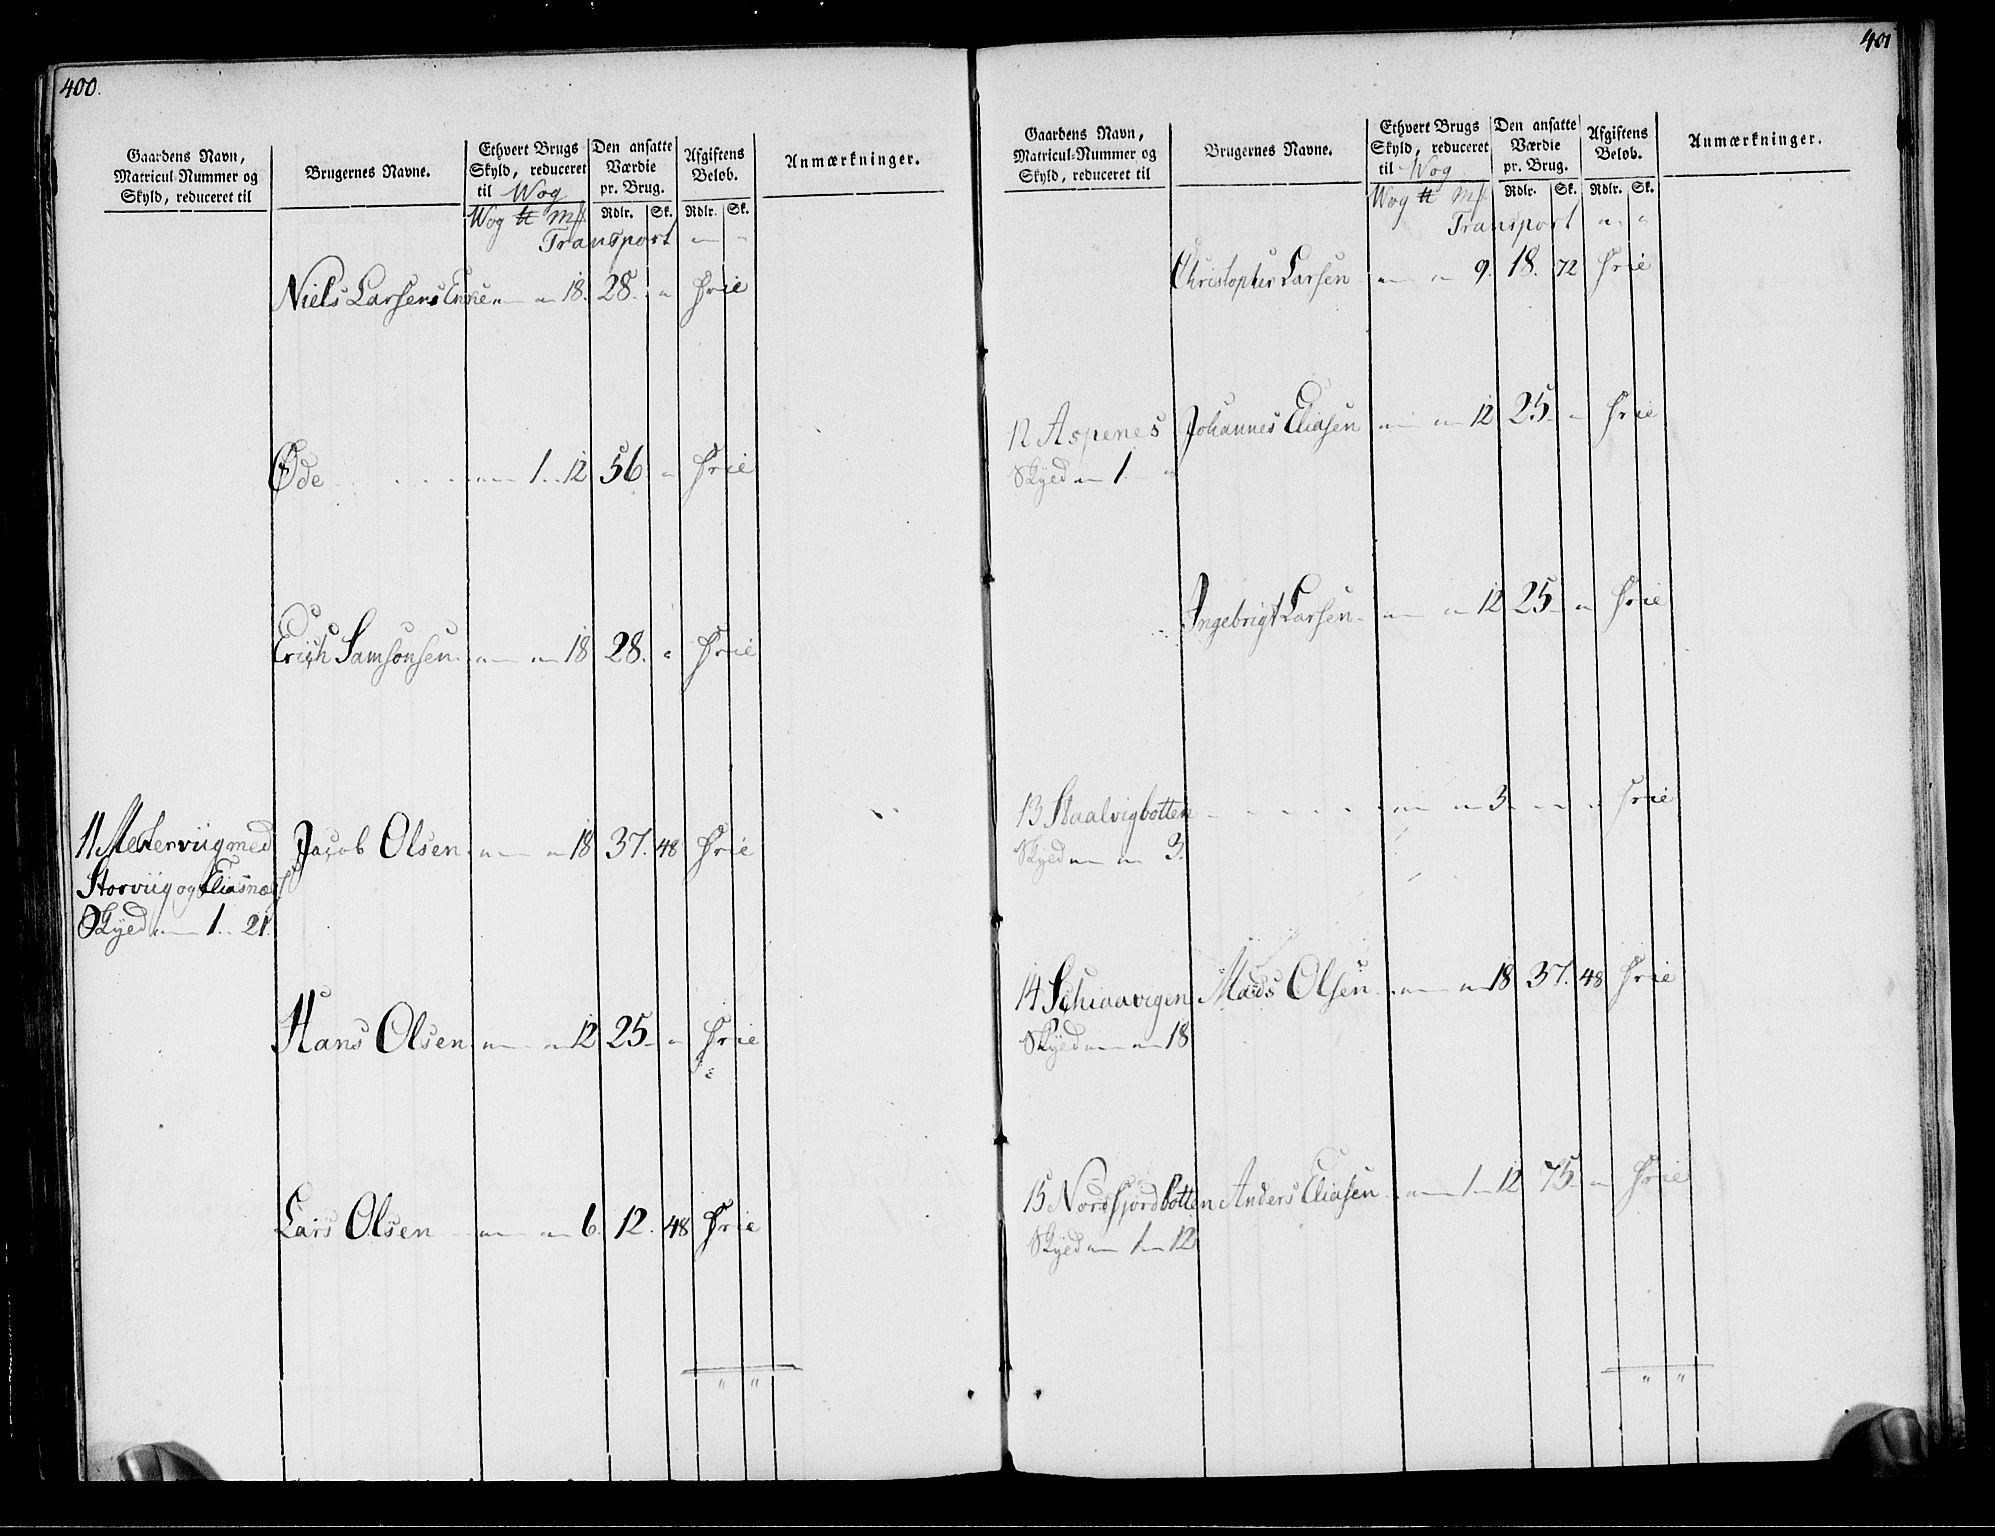 400.
Gaardens Navn, Matricul-Nummer og Skyld, reduceret til
Brugernes Navne.
Ethvert Brugs Skyld, reduceret til Wog
Den ansatte Værdie pr. Brug.
Afgiftens Beløb.
Anmærkninger.
Wog ℔ Mk Rdlr. Sk. Rdlr. Sk.
Transport " "
Niels Larsens Enke " " 18. 28. " Frie
Øde " 1 " 12 56 " Frie
Erich Samsonsen " " 18 28. " Frie
11 Mestervügmed Jacob Olsen " " 18 37. 48 Frie
Storvüg og Eliasnæs
Skyed " 1 " 21.
Hans Olsen " " 12 25 " Frie
Lars Olsen " " 6 12. 48 Frie
" "
401
Gaardens Navn, Matricul-Nummer og Skyld, reduceret til
Brugernes Navne.
Ethvert Brugs Skyld, reduceret til Wog
Den ansatte Værdie pr. Brug.
Afgiftens Beløb.
Anmærkninger.
Wog ℔ Mk Rdlr. Sk. Rdlr. Sk.
Transport " "
Christopher Larsen " " 9. 18. 72 Frie
12 Aspenes Johannes Eliasen " " 12 25 " Frie
Skyed " 1 "
Ingebrigt Larsen " " 12 25 " Frie
13 Staalvigbotten " " 3 " " Frie
Skyed " " 3.
14 Schiaavigen Mads Olsen " " 18 37. 48 Frie
Skyed " " 18
15 Nordfjordbotten Anders Eliasen " 1 " 12 75 " Frie
Skyed " 1 " 12
" "